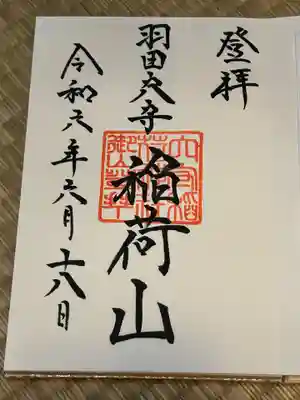 登拝
羽田穴守
稲荷山
令和元年六月十八日